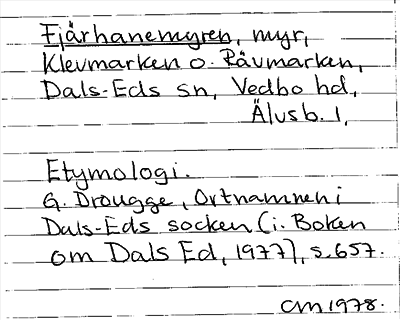 Fjärhanemyren, myr,
Klevmarken o. Rävmarken,
Dals-Eds sn, Vedbo hd,
Älvsb. l,
Etymologi.
G. Drougge, Ortnamnen i
Dals-Eds socken (i: Boken
om Dals Ed, 1977), s. 657.
CM 1978.